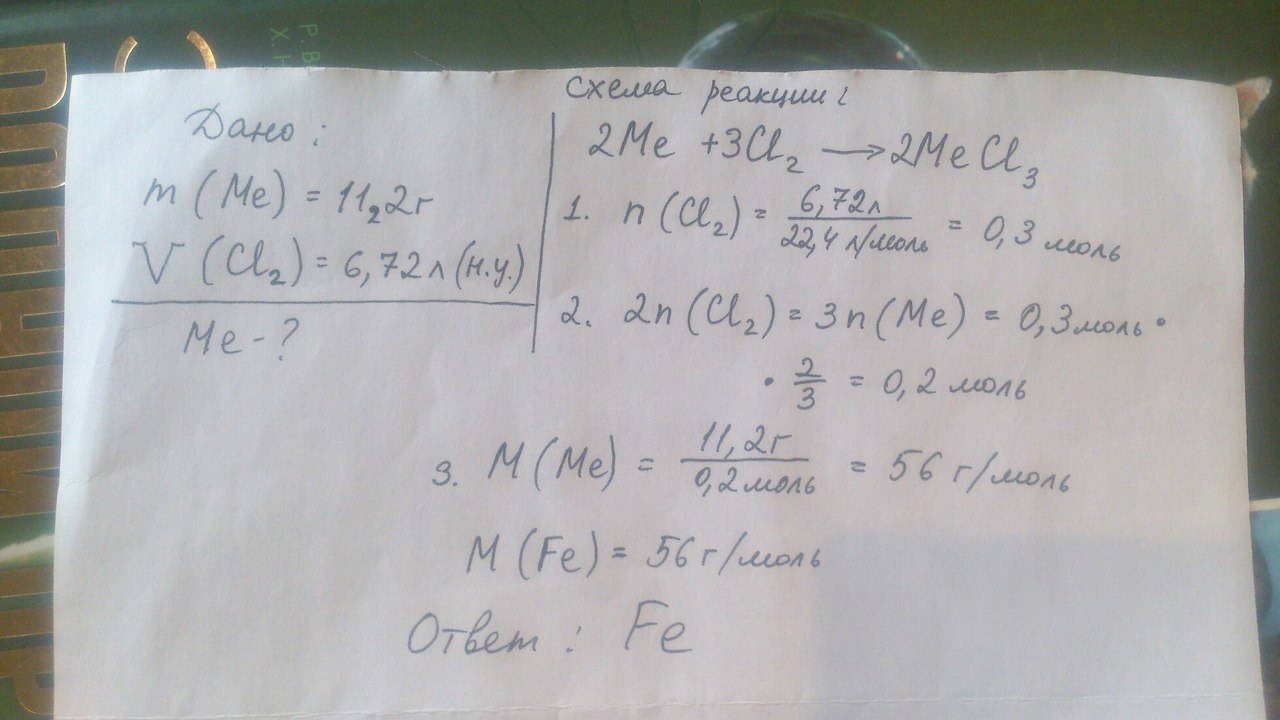 Дано:
m (Me) = 11,2г
V (Cl2) = 6,72л (н.у.)
Me - ?
схема реакции:
2Me + 3Cl2 → 2MeCl3
1. n (Cl2) = 6,72л / 22,4 л/моль = 0,3 моль
2. 2n (Cl2) = 3n (Me) = 0,3моль •
• 2/3 = 0,2 моль
3. M (Me) = 11,2г / 0,2моль = 56 г/моль
M (Fe) = 56 г/моль
Ответ: Fe